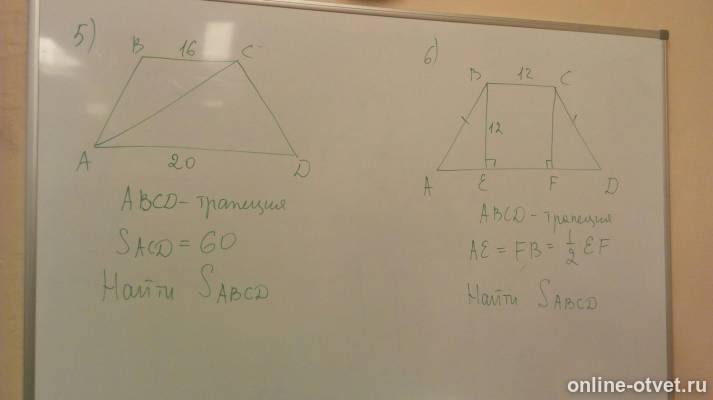 5)
B 16 C
A 20 D
ABCD - трапеция
S ACD = 60
Найти S ABCD
6)
B 12 C
12
A E F D
ABCD - трапеция
AE = FB = 1/2 EF
Найти S ABCD
online-otvet.ru